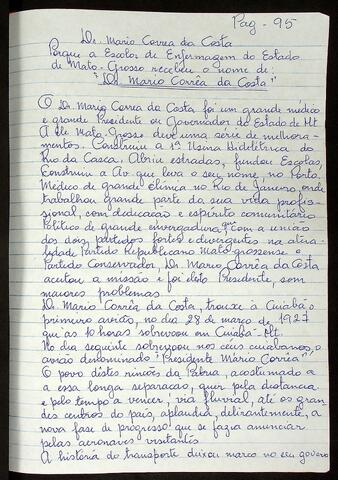 Pag - 95
Dr. Mario Correa da Costa
Porque a Escolar de Enfermagem do Estado
de Mato-Grosso recebeu o nome de:
"Dr. Mario Corrêa da Costa"
O Dr. Mario Correa da Costa foi um grande médico
e grande Presidente ou Governador do Estado de Mt
A ele Mato-Grosso deve uma série de melhora-
mentos. Construiu a 1ª Usina Hidelétrica do
Rio da Casca. Abriu estradas, fundou Escolas,
Construiu a Av. que leva o seu nome, no Porto.
Médico de grande clinica no Rio de Janeiro, onde
trabalhou grande parte da sua vida profis-
sional, com dedicação e espirito comunitário
Político de grande envergadura, com a união
dos dois partidos fortes e divergentes na atua-
lidade Partido Republicano Mato-grossense e
Partido Conservador, Dr. Mario Corrêa da Costa
aceitou a missão e foi eleito Presidente, sem
maiores problemas.
Dr. Mario Corrêa da Costa, trouxe à Cuiabá o
primeiro avião, no dia 28 de março de 1927
que às 10 horas sobrevoou em Cuiabá-Mt.
No dia seguinte sobrevoou nos céus cuiabanos, o
avião denominado "Presidente Mário Corrêa"
O povo dêstes rincões da Pátria, acostumado a
a essa longa separação, quer pela distancia
e pelo tempo a vencer, via fluvial, até os gran
des centros do país, aplaudia, delirantemente, a
nova fase de progresso que se fazia anunciar
pelas aeronaves visitantes
A história do transporte deixou marco no seu governo